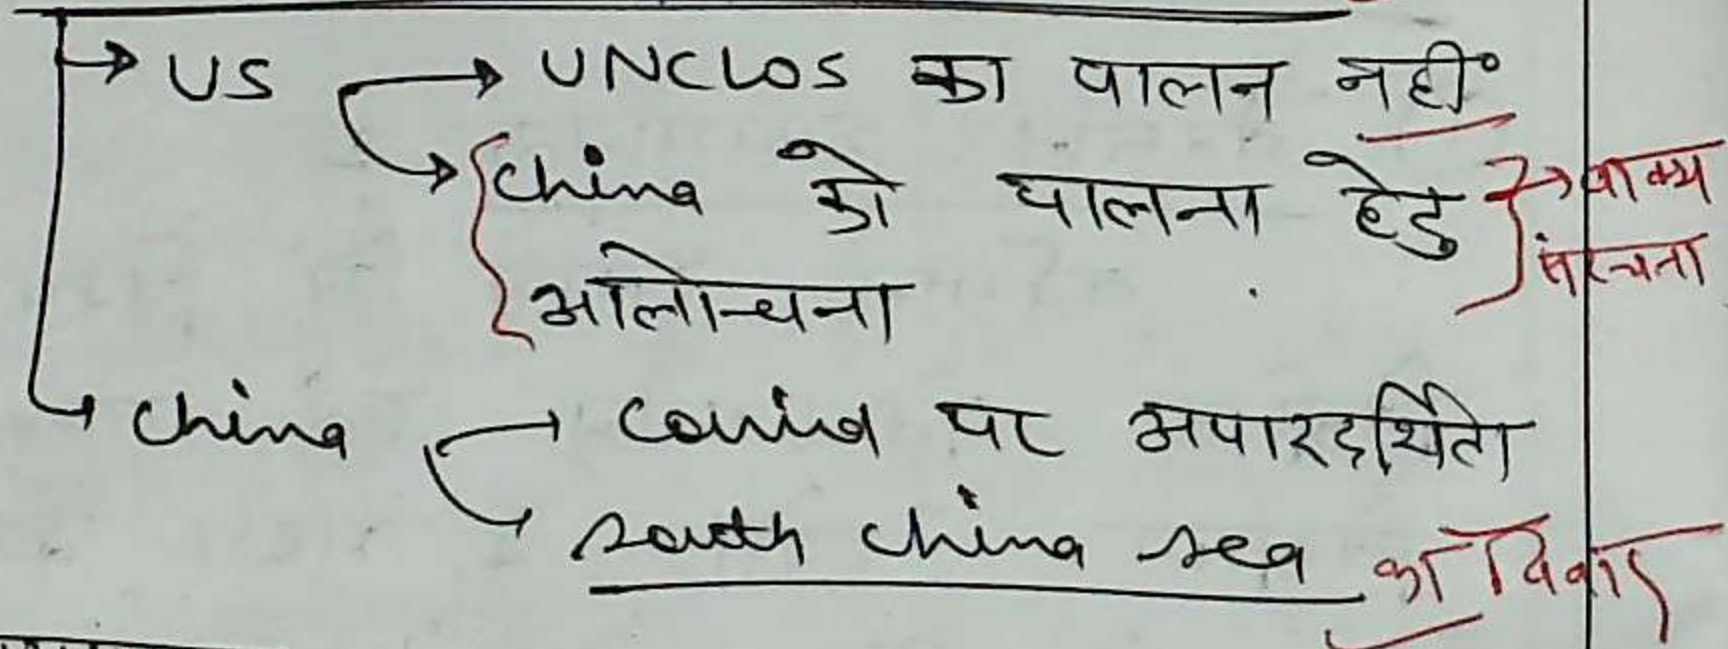 US → UNCLOS का पालन नहीं
→ China को पालना हेतु → वाक्य
आलोचना संरचना
China → Covid पर अपारदर्शिता
→ south china sea का विवाद